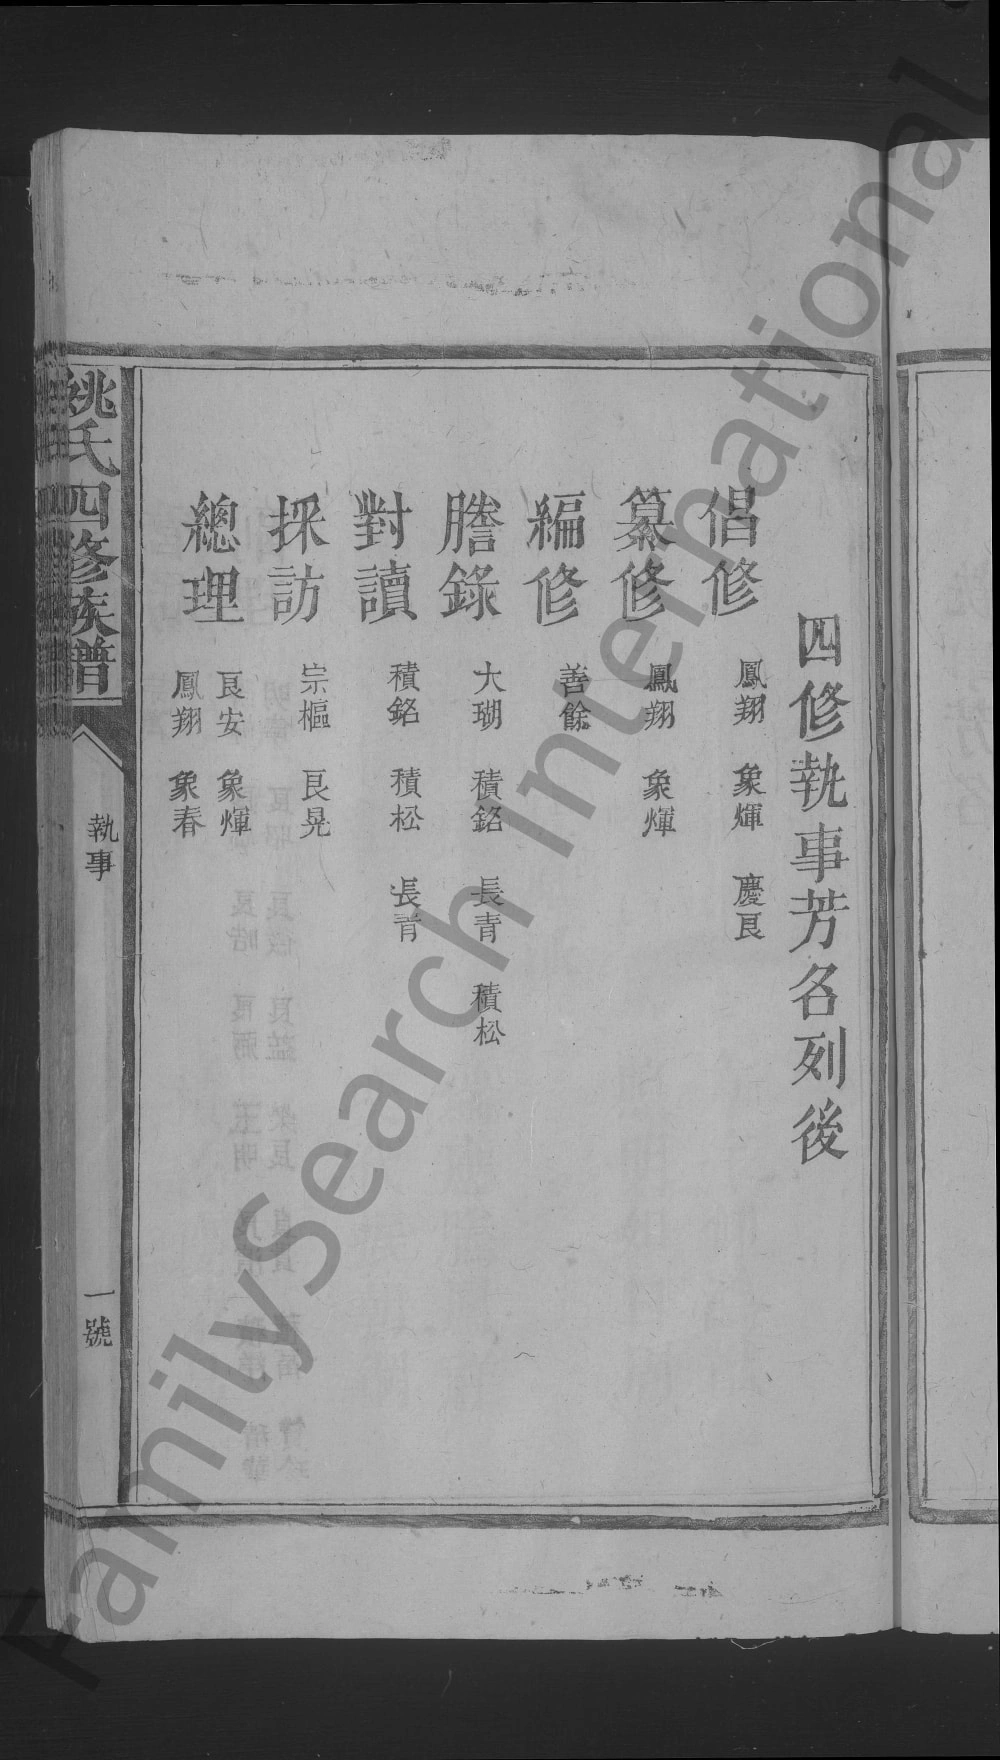 四修執事芳名列後
倡修 鳳翔 象煇 慶良
纂修 鳳翔 象煇
編修 善餘
謄錄 大瑚 積銘 長青 積松
對讀 積銘 積松 長青
採訪 宗樞 良晃
總理 良安 象煇
鳳翔 象春
姚氏四修族譜
執事
一號
FamilySearch International